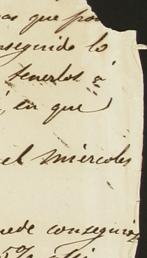 que
nseguido lo
tenerlos á
en que
el miércoles
uede conseguir